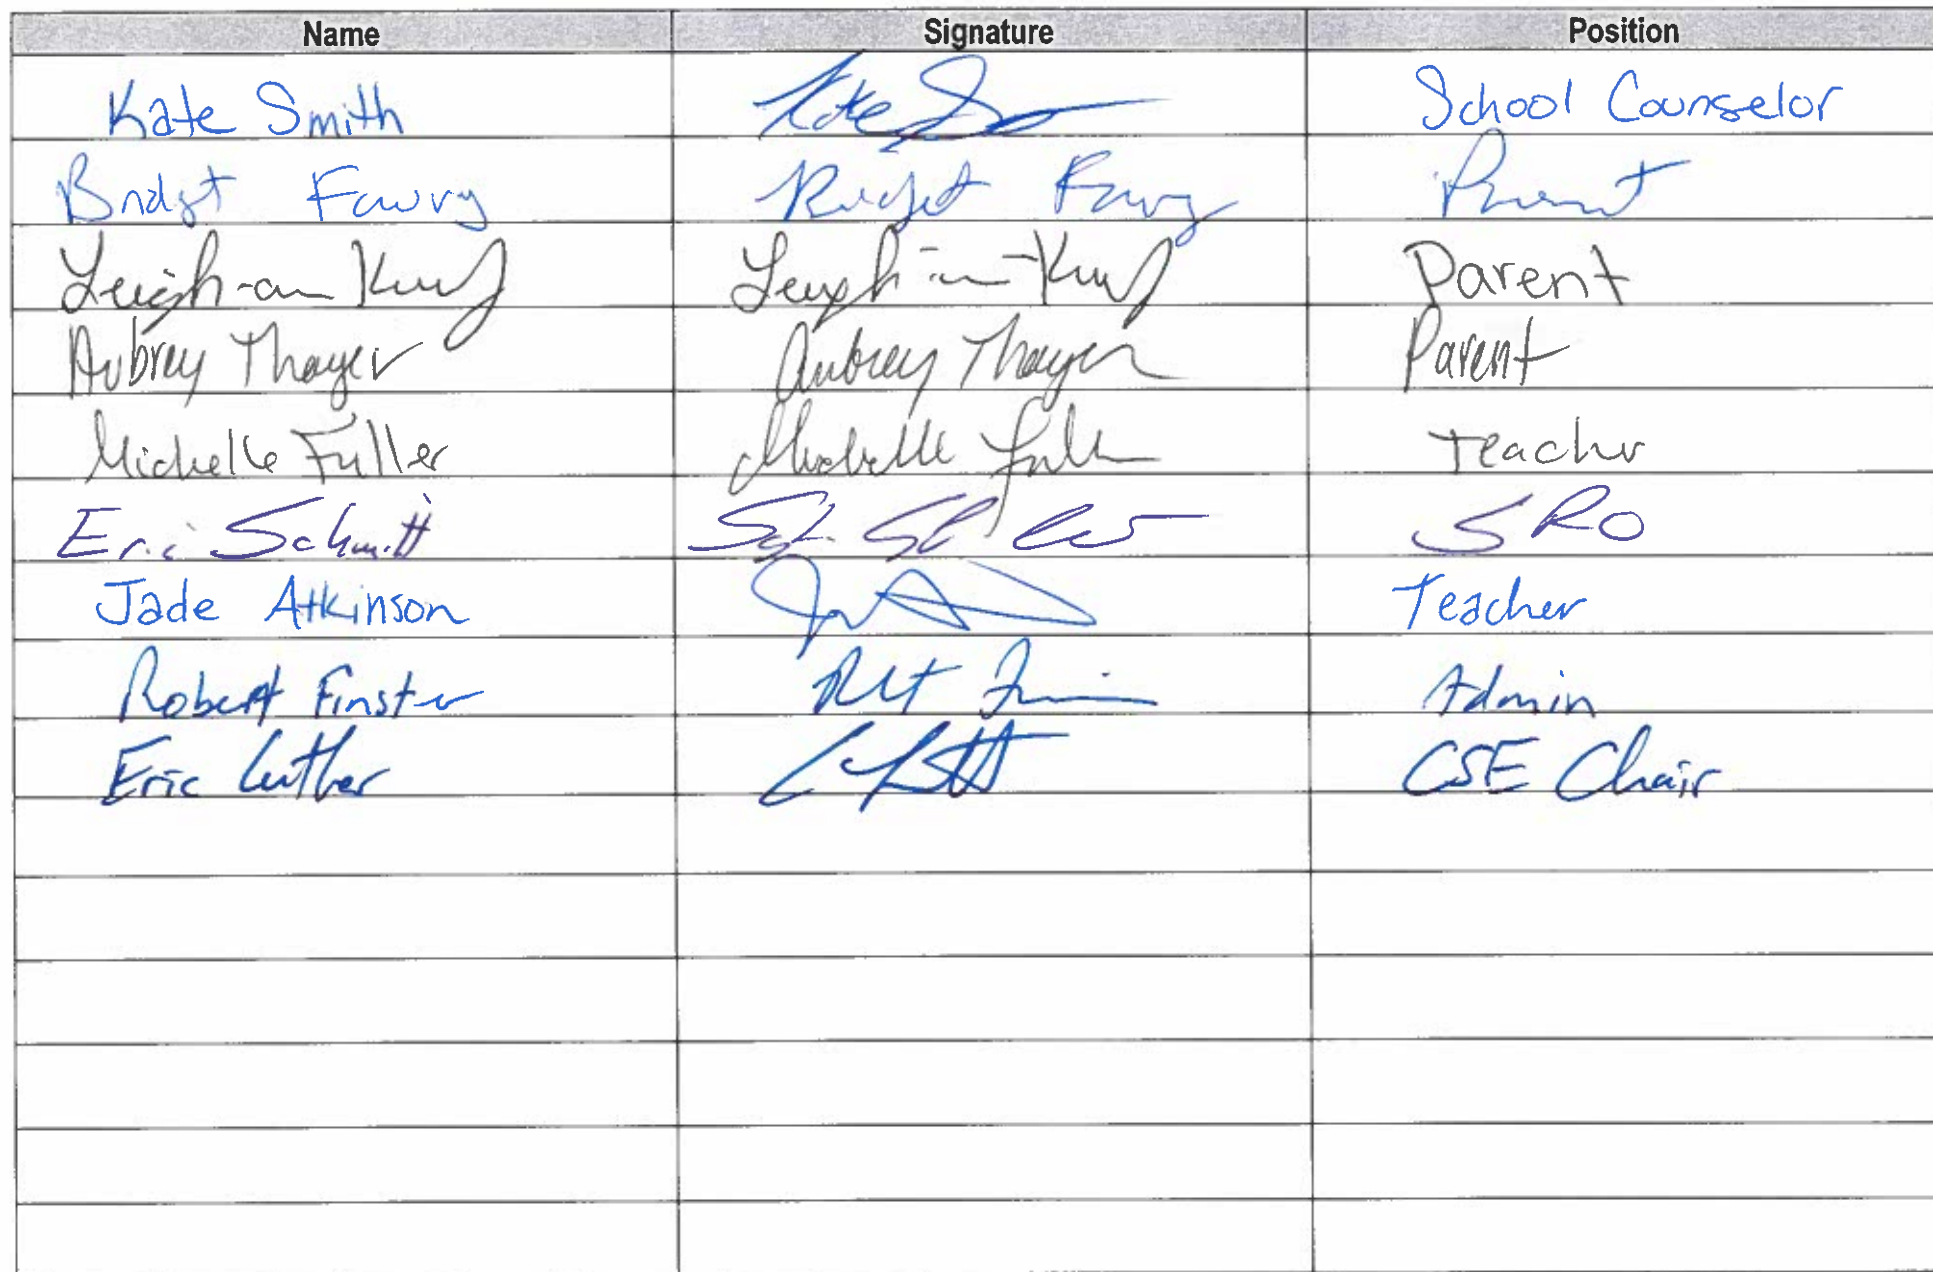 Name Signature Position
Kate Smith Kate School Counselor
Bridget Parent
Leigh-an Leigh-an Parent
Aubrey Thayer Aubrey Thayer Parent
Michelle Fuller Michelle Fuller Teacher
Eric Schmitt SRO
Jade Atkinson Teacher
Robert Finster Admin
Eric Luther CSE Chair